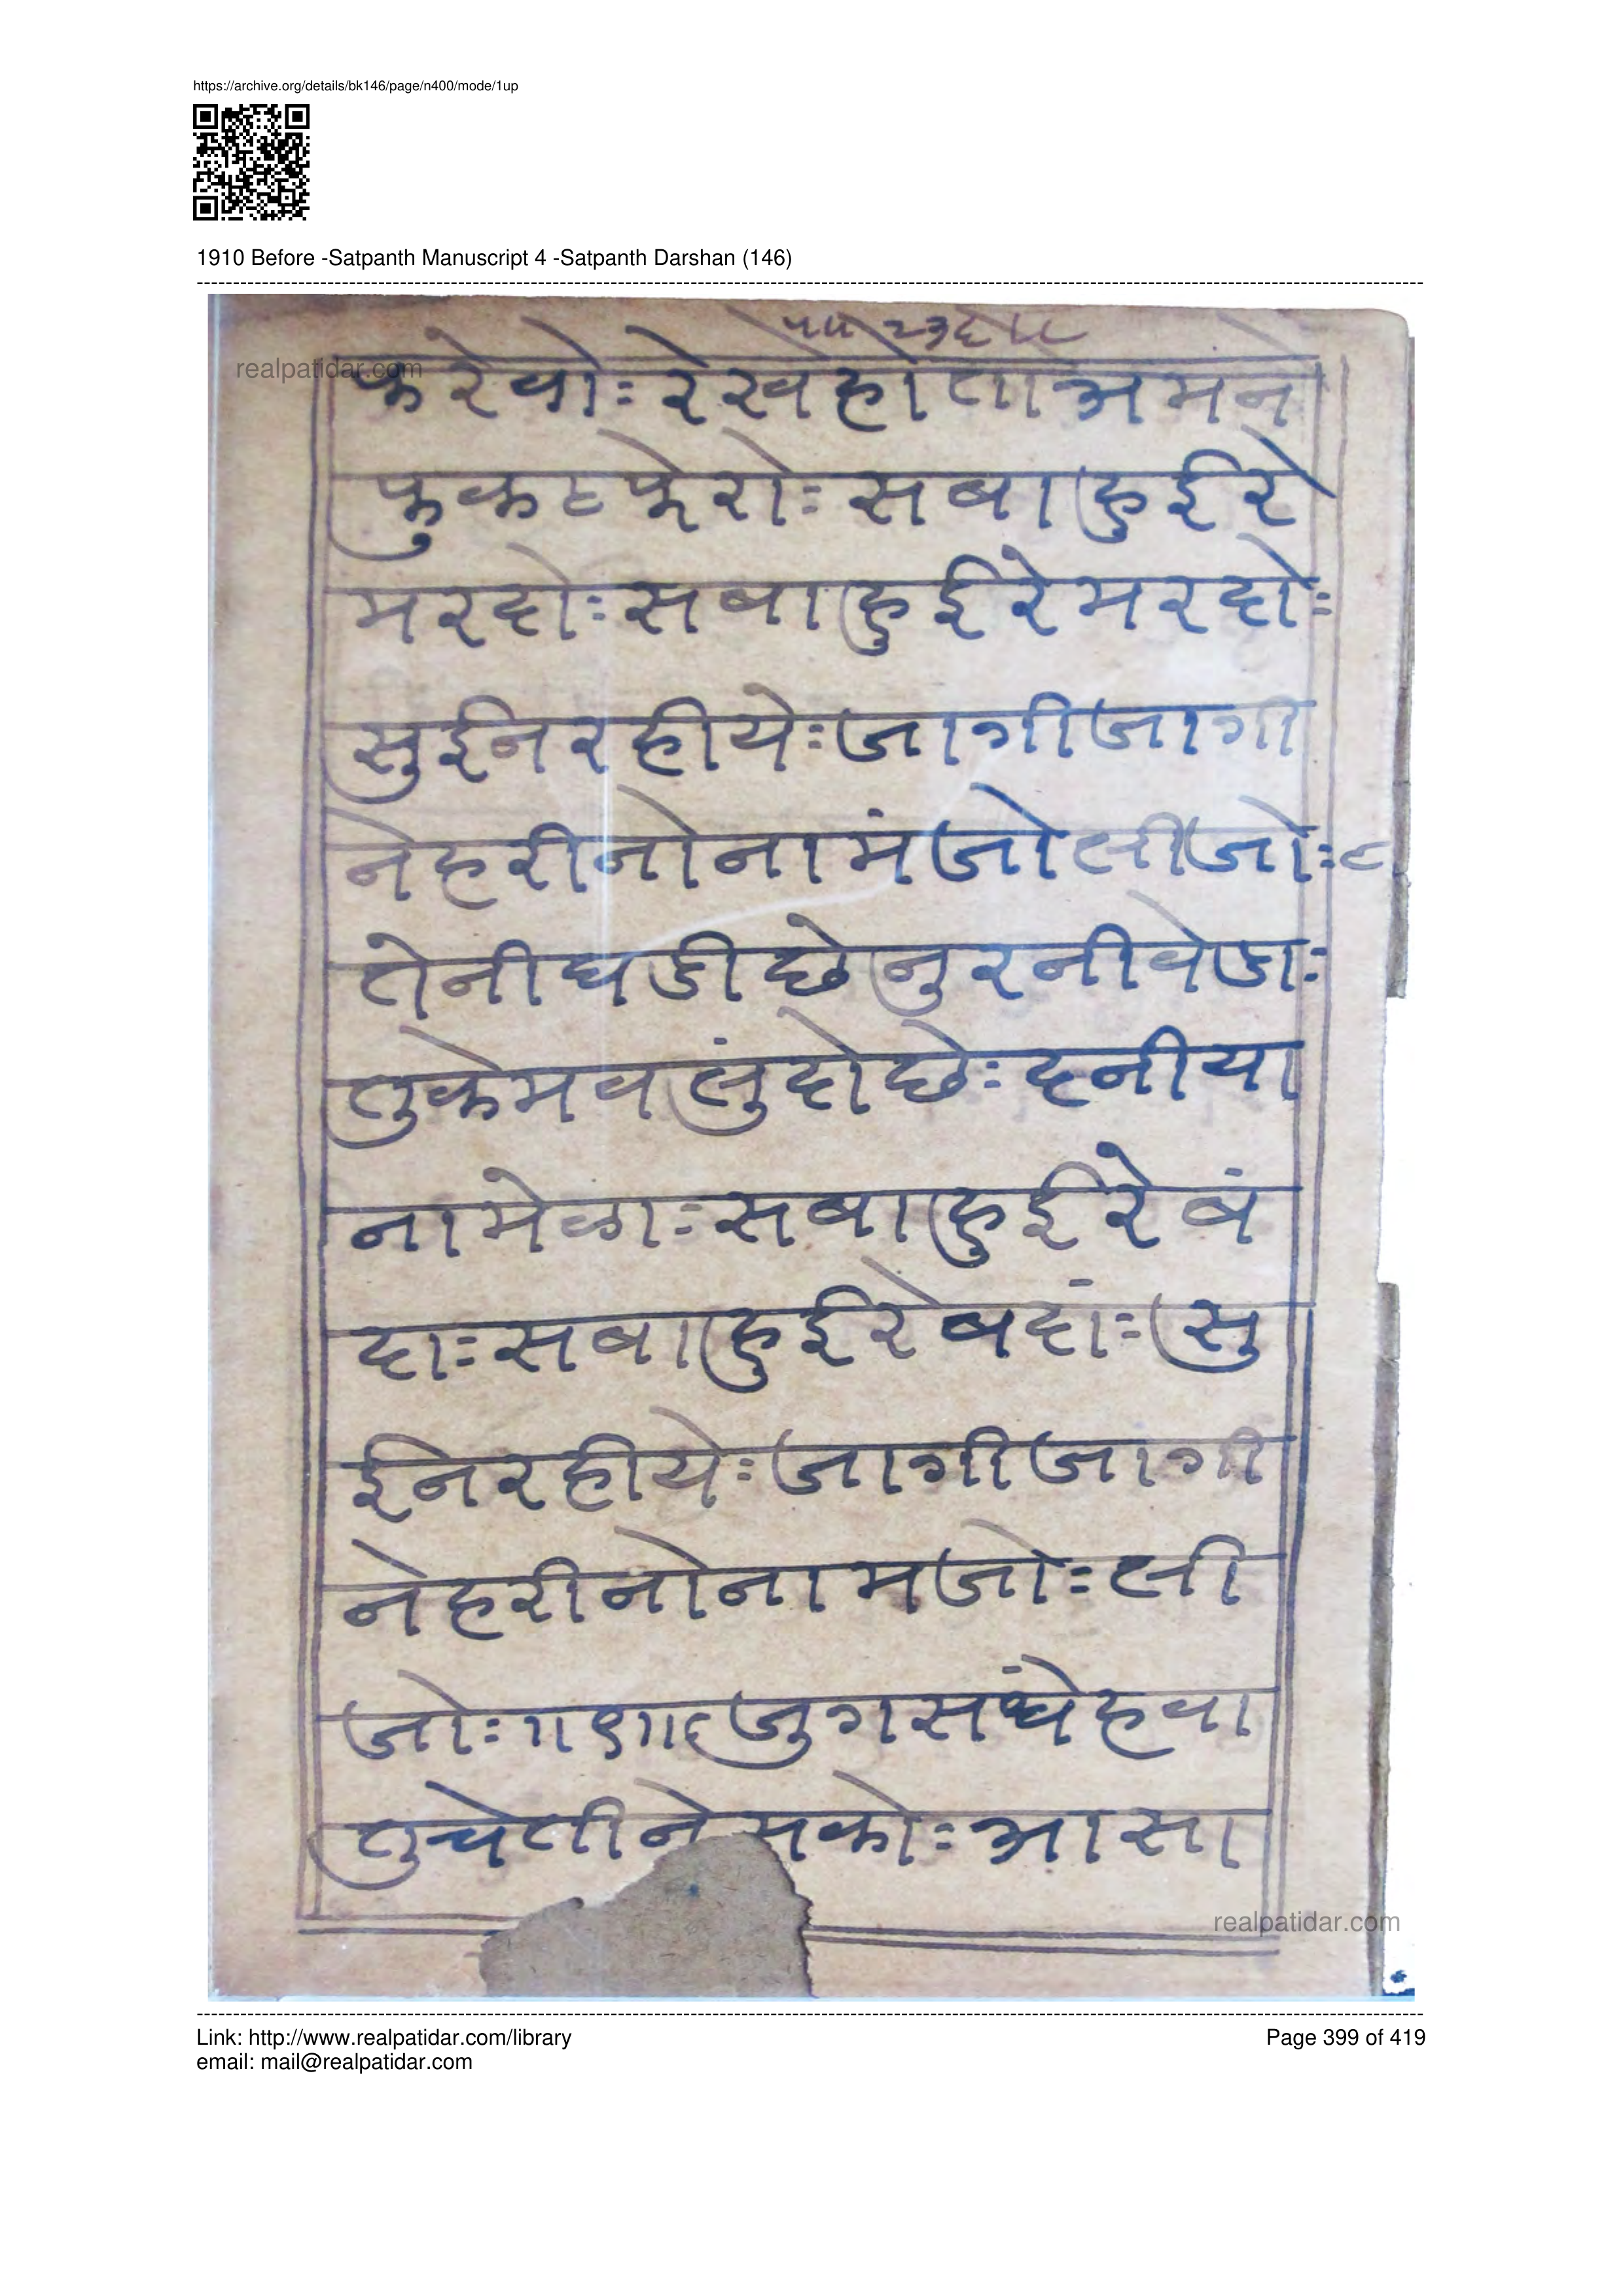 https://archive.org/details/bk146/page/n400/mode/1up
1910 Before -Satpanth Manuscript 4 -Satpanth Darshan (146)
realpatidar.com
करेवोः रेखेहोताअमने
फुकटफेरोः सबाहुईरे
मरदोः सबाहुईरेमरदोः
सुईनरहीयेः जागीजागी
नेहरीनोनामंजोलीजोः ८
तेनीघडीछेनुरनीवेडाः
तुकेमवलुंदोछेः दनीया
नामेळाः सबाहुईरेबं
दाः सबाहुईरेबदांः सु
ईनरहीयेः जागीजागी
नेहरीनोनामजोः ली
जोः ॥९॥ जुगसंघेहवा
तुचेतीने सकोः आसा
realpatidar.com
Link: http://www.realpatidar.com/library
Page 399 of 419
email: mail@realpatidar.com